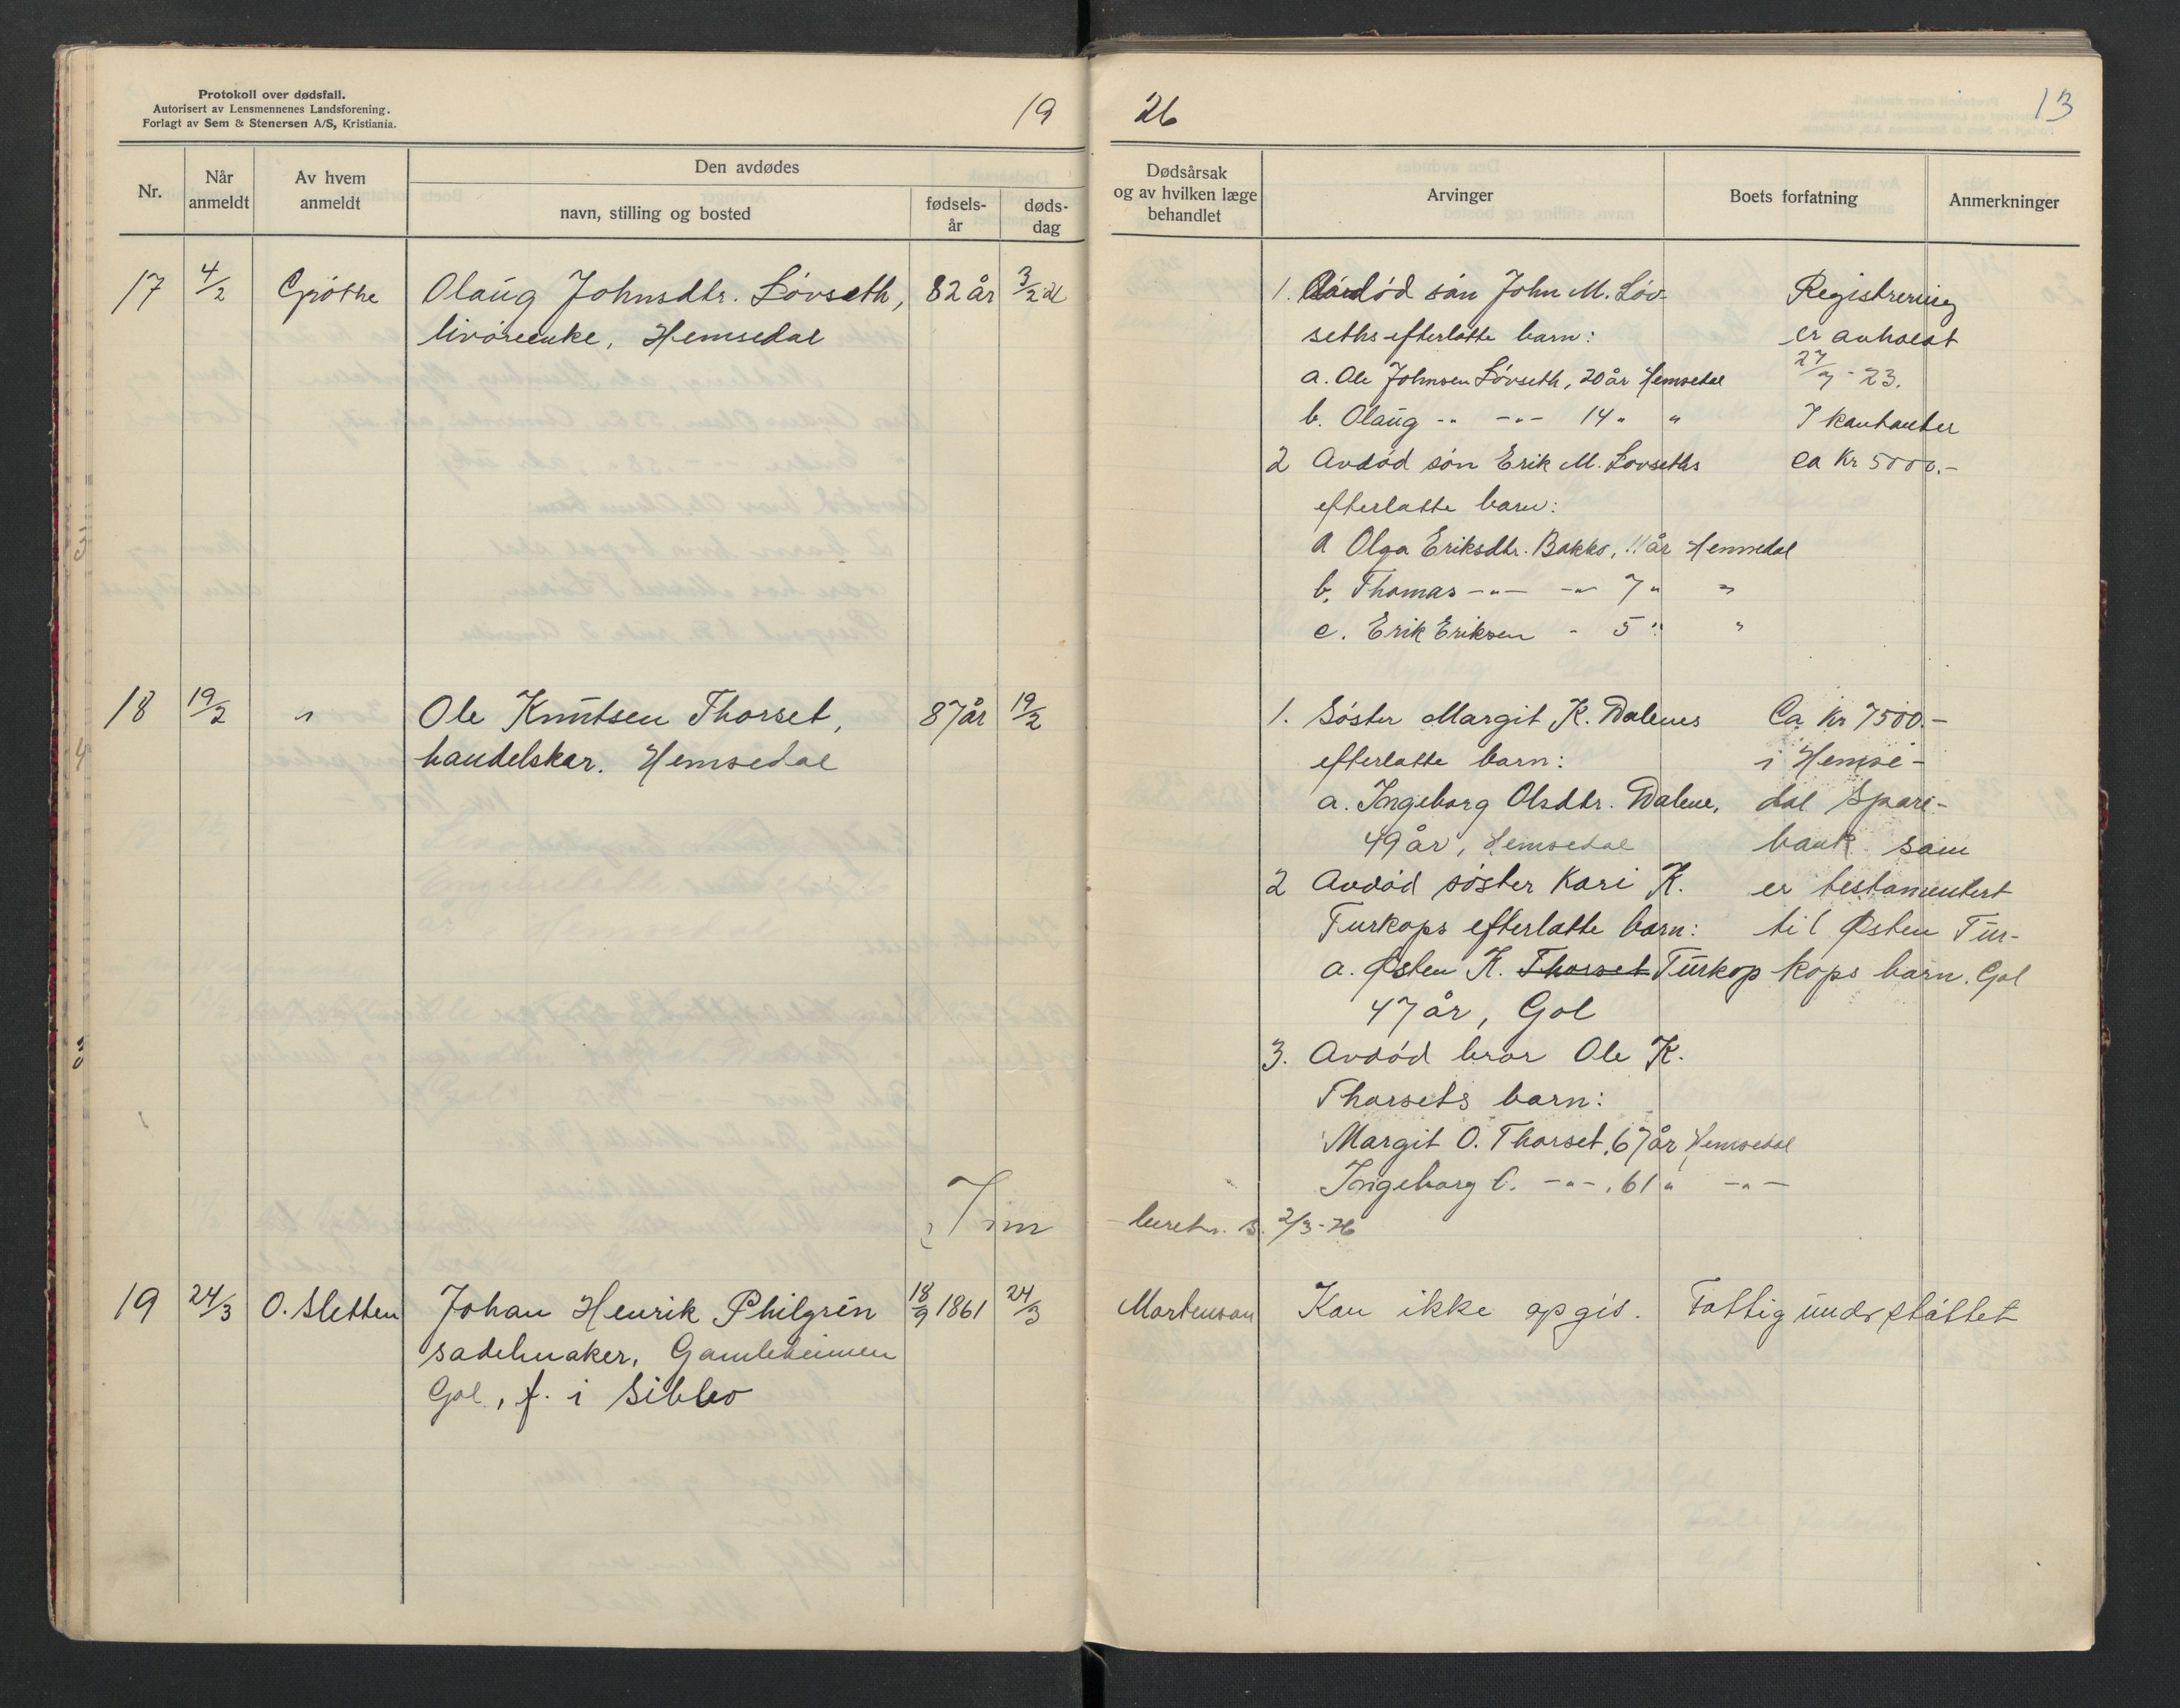 Protokoll over dødsfall.
Autorisert av Lensmennenes Landsforening.
Forlagt av Sem & Stenersen A/S, Kristiania.
19
26
13
Nr.
Når anmeldt
Av hvem anmeldt
Den avdødes
navn, stilling og bosted
fødsels-år
døds-dag
Dødsårsak og av hvilken læge behandlet
Arvinger
Boets forfatning
Anmerkninger
17 4/2 Grøthe Olaug Johnsdtr. Løvseth, 82 år 3/2
livøreenke, Hemsedal
1. Avdød søn John M. Løv-
seths efterlatte barn:
a. Ole Johnsen Løvseth, 20 år Hemsedal
b. Olaug -"- -"- 14 " "
2 Avdød søn Erik M. Løvseths
efterlatte barn:
a Olga Eriksdtr. Bakko, 11 år Hemsedal
b. Thomas -"- -"- 7 " "
c. Erik Eriksen - 5 " "
Registrering
er avholdt
23.
I kontanter
ca Kr 5000.-
18 19/2 " Ole Knutsen Thorset, 87 år 19/2
handelskar. Hemsedal
1. Søster Margit K. Dalenes
efterlatte barn:
a. Ingeborg Olsdtr. Dalene,
49 år, Hemsedal
2 Avdød søster Kari K.
Turkops efterlatte barn:
a. Østen K. Thorset Turkop
47 år, Gol
3. Avdød bror Ole K.
Thorsets barn:
Margit O. Thorset, 67 år Hemsedal
Ingeborg O. -"-, 61 " -"-
Ca Kr 7500.-
i Hemse-
dal Spare-
bank som
er testamentert
til Østen Tur-
kops barn. Gol
2/3-26
19 24/3 O. Sletten Johan Henrik Philgrén 18/9 1861 24/3
sadelmaker, Gamleheimen
Gol, f. i Sibbo
Mortenson
Kan ikke opgis.
Fattigunderstøttet